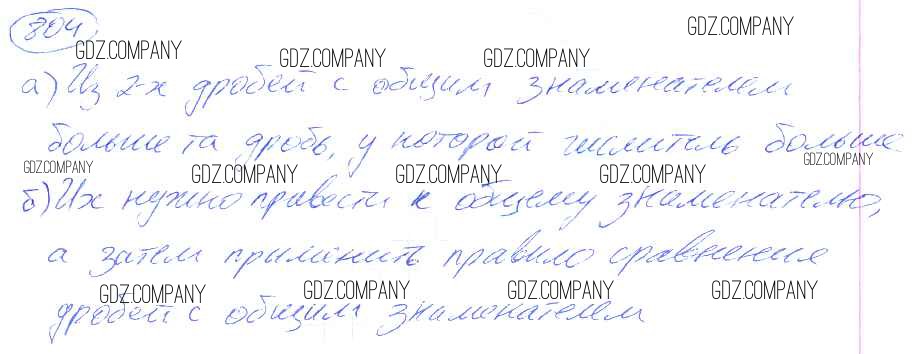 804
GDZ.COMPANY
GDZ.COMPANY GDZ.COMPANY GDZ.COMPANY
а) Из 2-х дробей с общим знаменателем
больше та дробь, у которой числитель больше.
GDZ.COMPANY GDZ.COMPANY GDZ.COMPANY GDZ.COMPANY GDZ.COMPANY
б) Их нужно привести к общему знаменателю,
а затем применить правило сравнения
GDZ.COMPANY GDZ.COMPANY GDZ.COMPANY GDZ.COMPANY
дробей с общим знаменателем